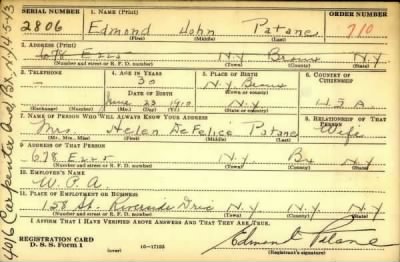 SERIAL NUMBER 1. NAME (Print) ORDER NUMBER
2806 Edmond John Patane 710
(First) (Middle) (Last)
2. ADDRESS (Print)
678 N.Y. Bronx N.Y.
(Number and street or R. F. D. number) (Town) (County) (State)
3. TELEPHONE 4. AGE IN YEARS 5. PLACE OF BIRTH 6. COUNTRY OF CITIZENSHIP
30 N.Y. Bronx
DATE OF BIRTH (Town or county)
June 23 1910 N.Y. U S A
(Exchange) (Number) (Mo.) (Day) (Yr.) (State or country)
7. NAME OF PERSON WHO WILL ALWAYS KNOW YOUR ADDRESS 8. RELATIONSHIP OF THAT PERSON
Mrs. Helen DeFelice Patane Wife
(Mr., Mrs., Miss) (First) (Middle) (Last)
9. ADDRESS OF THAT PERSON
678 N.Y. Bx N.Y.
(Number and street or R. F. D. number) (Town) (County) (State)
10. EMPLOYER'S NAME
W. P. A.
11. PLACE OF EMPLOYMENT OR BUSINESS
158 St. Riverside Drive N.Y.
(Number and street or R. F. D. number) (Town) (County) (State)
I AFFIRM THAT I HAVE VERIFIED ABOVE ANSWERS AND THAT THEY ARE TRUE.
REGISTRATION CARD
D. S. S. Form 1 (over) 16—17105 Edmond Patane
4016 Carpenter Ave Bx.